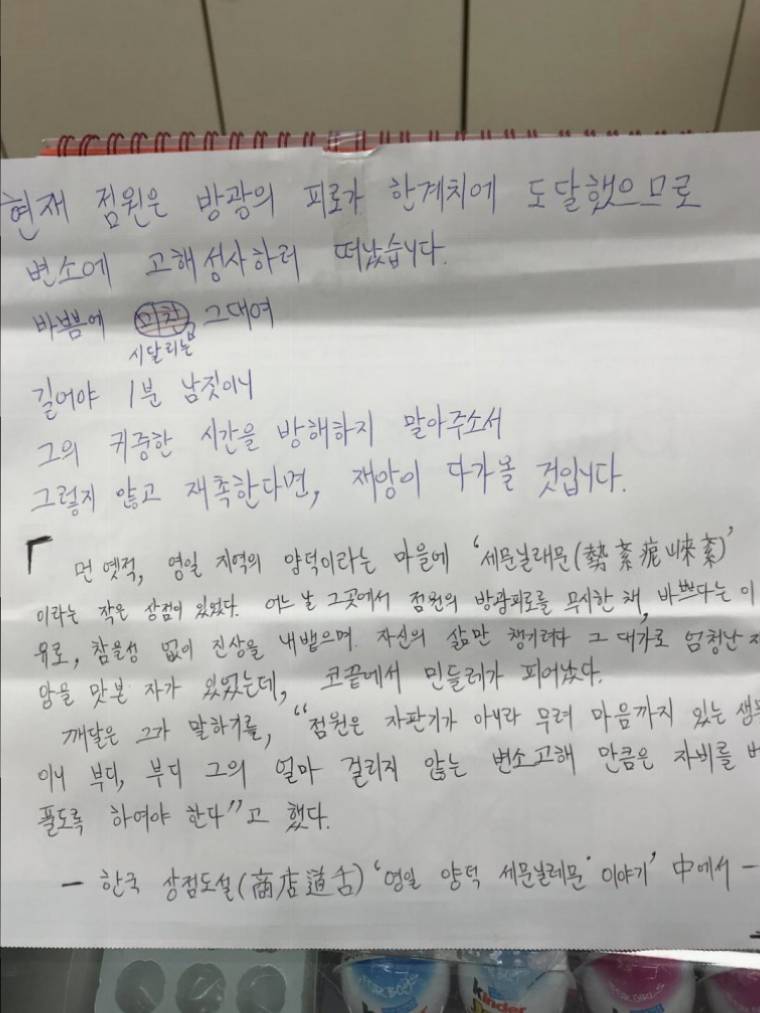 현재 점원은 방광의 피로가 한계치에 도달했으므로
변소에 고해성사하러 떠났습니다.
바쁨에 미친 그대여
시달리는
길어야 1분 남짓이니
그의 귀중한 시간을 방해하지 말아주소서
그렇지 않고 재촉한다면, 재앙이 다가올 것입니다.
「 먼 옛적, 영일 지역의 양덕이라는 마을에 '세문닐래문(勢紊痆崍紊)'
이라는 작은 상점이 있었다. 어느 날 그곳에서 점원의 방광피로를 무시한 채, 바쁘다는 이
유로, 참을성 없이 진상을 내뱉으며 자신의 삶만 챙기려다 그 대가로 엄청난 재
앙을 맛본 자가 있었는데, 코끝에서 민들레가 피어났다.
깨달은 그가 말하기를, "점원은 자판기가 아니라 무려 마음까지 있는
이니 부디, 부디 그의 얼마 걸리지 않는 변소고해 만큼은 자비를 베
풀도록 하여야 한다"고 했다.
- 한국 상점도설(商店道舌) '영일 양덕 세문닐레문 이야기' 中에서 -
kinder
kinder